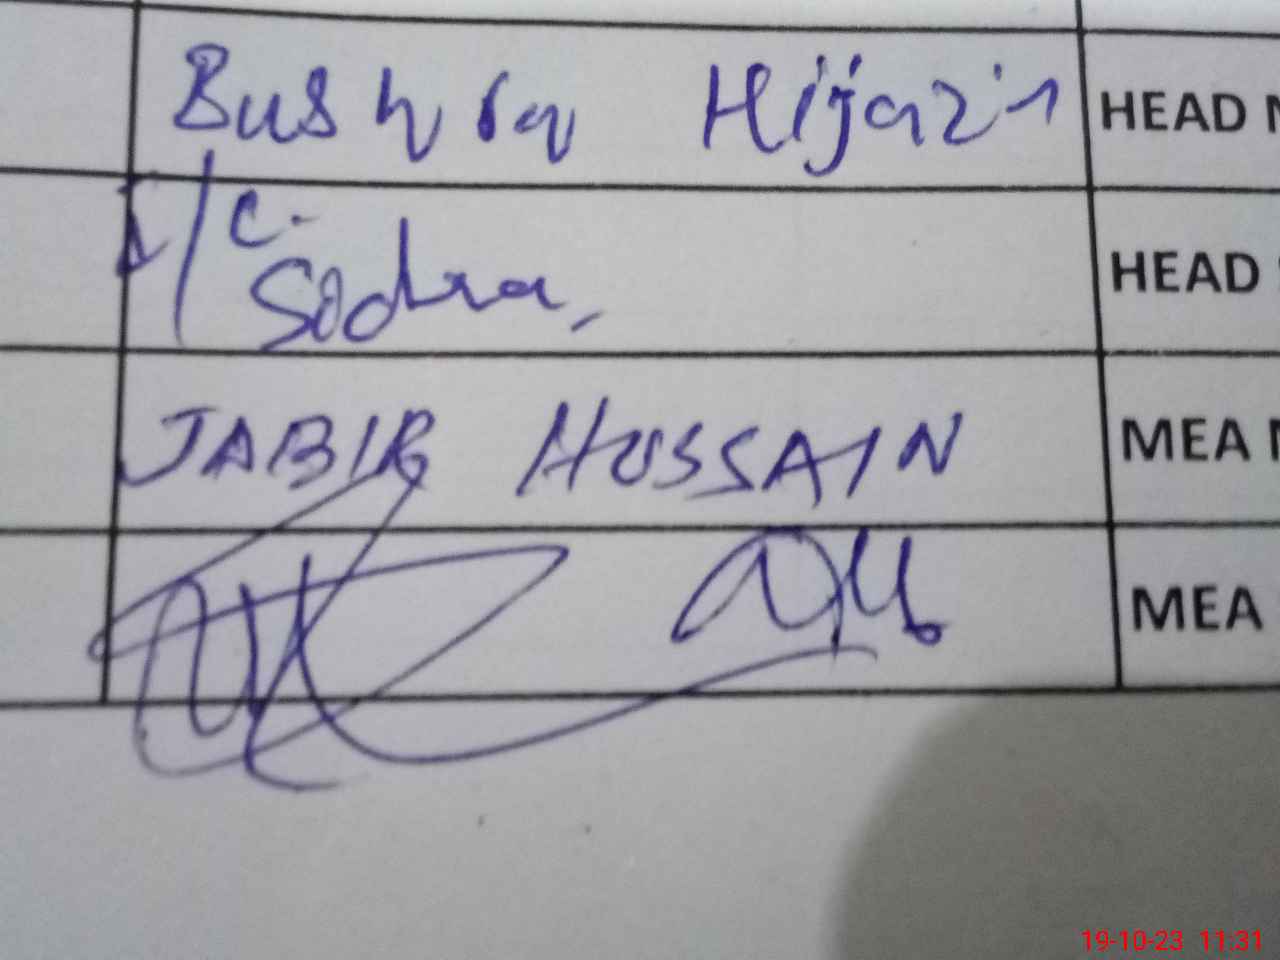 Bushra Hijazi HEAD
I/C.
Sodra, HEAD
JABIR HUSSAIN MEA
MEA
19-10-23 11:31